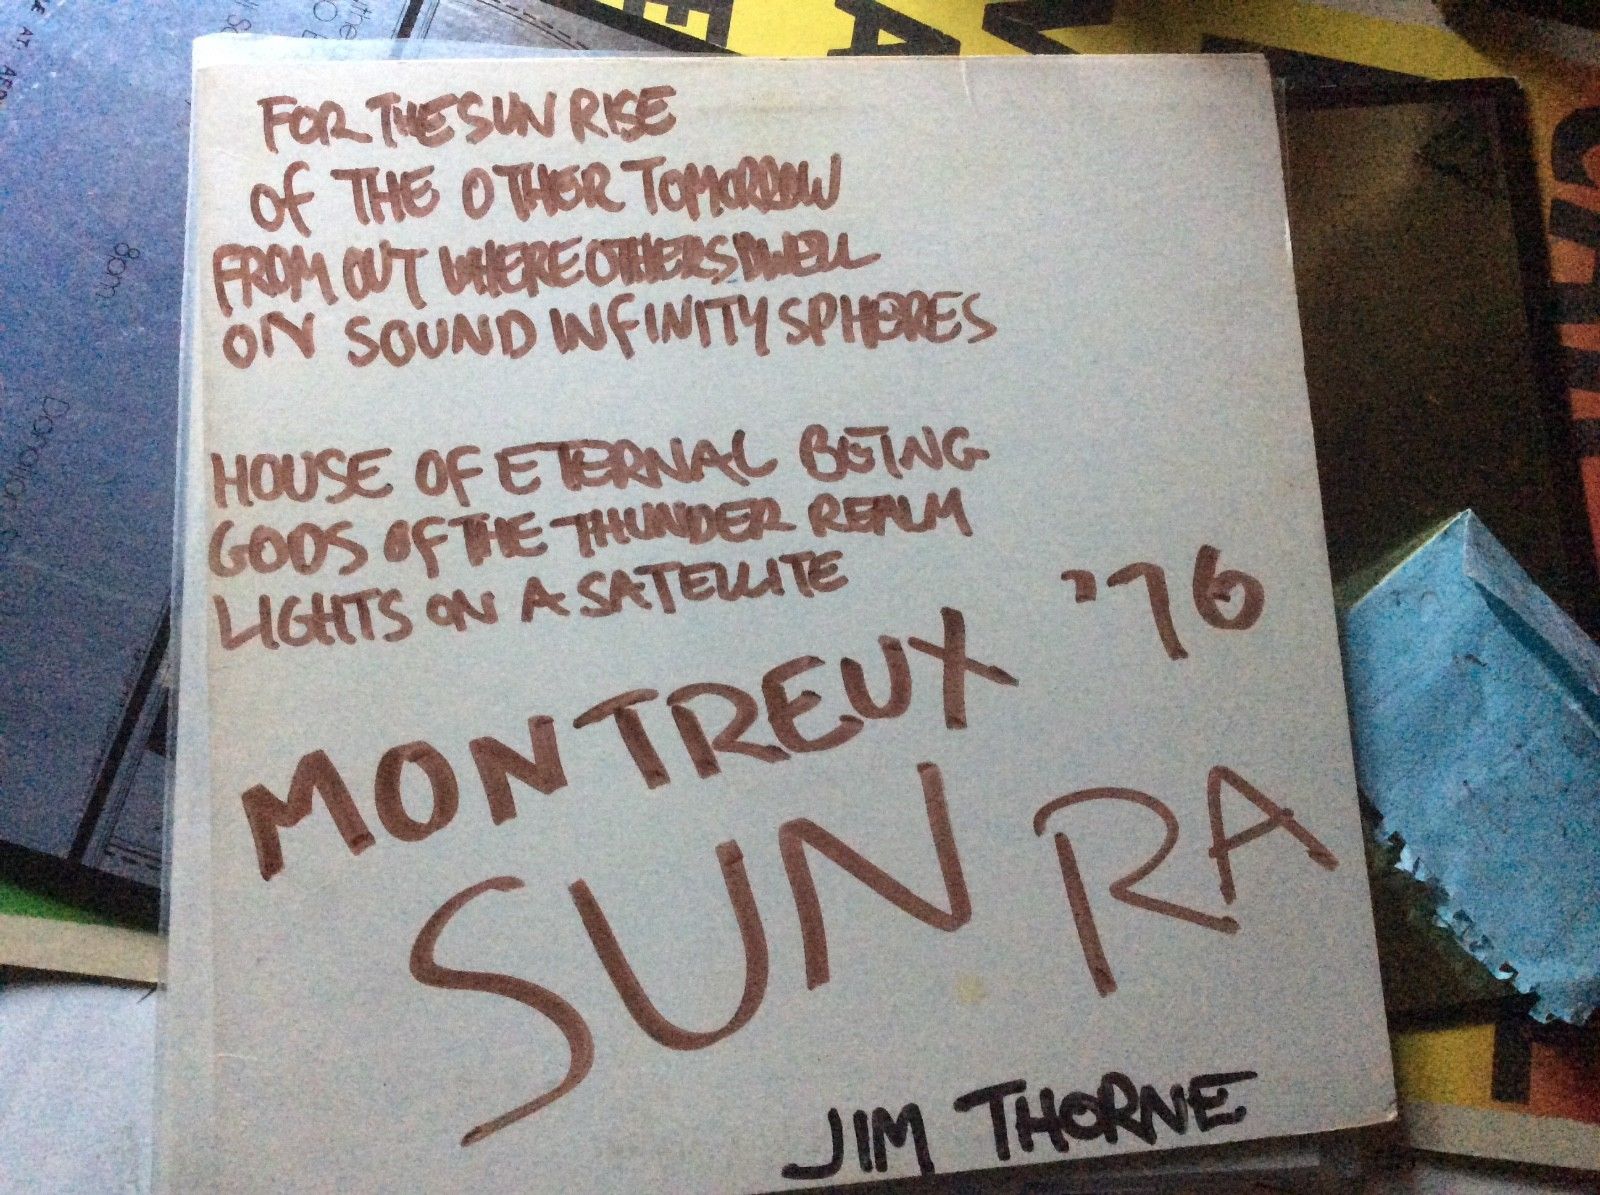 FOR THE SUN RISE
OF THE OTHER TOMORROW
FROM OUT WHERE OTHERS DWELL
ON SOUND INFINITY SPHERES
HOUSE OF ETERNAL BEING
GODS OF THE THUNDER REALM
LIGHTS ON A SATELLITE
MONTREUX '76
SUN RA
JIM THORNE
8am